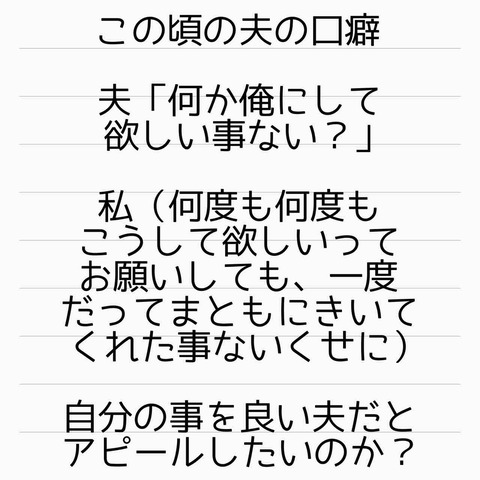 この頃の夫の口癖
夫「何か俺にして
欲しい事ない？」
私（何度も何度も
こうして欲しいって
お願いしても、一度
だってまともにきいて
くれた事ないくせに）
自分の事を良い夫だと
アピールしたいのか？